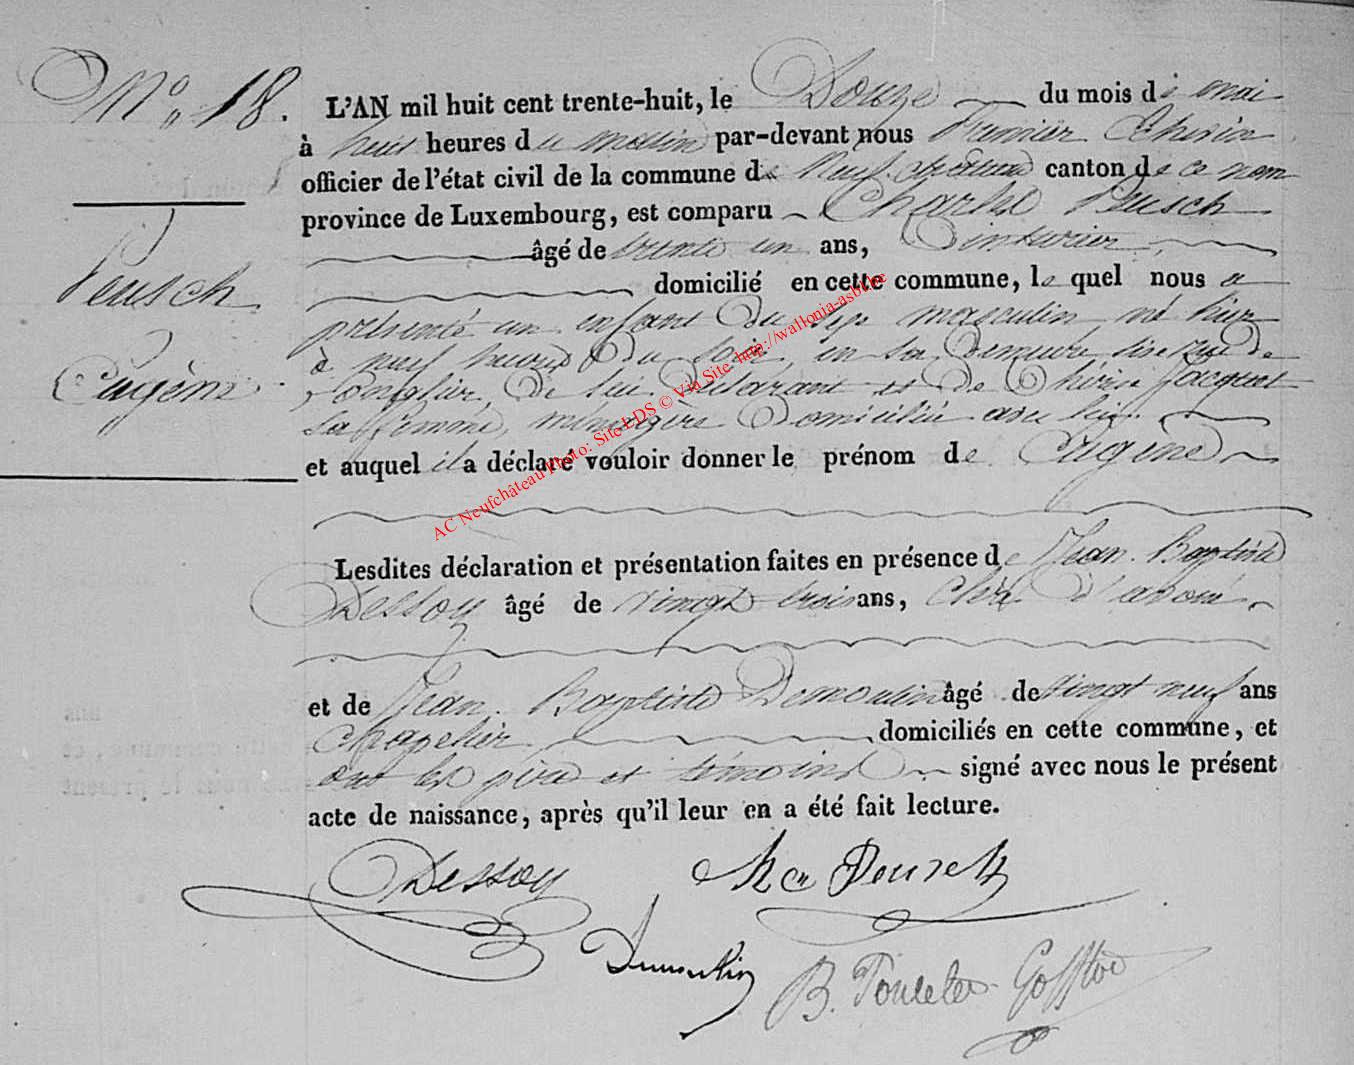 N° 18.
Peusch
Eugène
L'AN mil huit cent trente-huit, le Douze du mois de mai
à huit heures du matin par-devant nous Premier Echevin
officier de l'état civil de la commune de Neufchateau canton de ce nom
province de Luxembourg, est comparu Charles Peusch
âgé de trente un ans, Teinturier
domicilié en cette commune, le quel nous a
présenté un enfant du sexe masculin né hier
à neuf heures du soir, en sa demeure, sise rue de
Longlier, de lui déclarant et de Thérèse Jacquet
sa femme, ménagère domiciliée avec lui.
et auquel il a déclaré vouloir donner le prénom de Eugène
Lesdites déclaration et présentation faites en présence de Jean Baptiste
Dessoy âgé de vingt trois ans, Clerc d'avoué
et de Jean Baptiste Demoulin âgé de vingt neuf ans
Chapelier domiciliés en cette commune, et
ont les père et témoins signé avec nous le présent
acte de naissance, après qu'il leur en a été fait lecture.
Dessoy Peusch
Demoulin
B. Poncelet Goffloo
AC Neufchâteau Photo: Site LDS © Via Site: http://wallonia-asbl.be